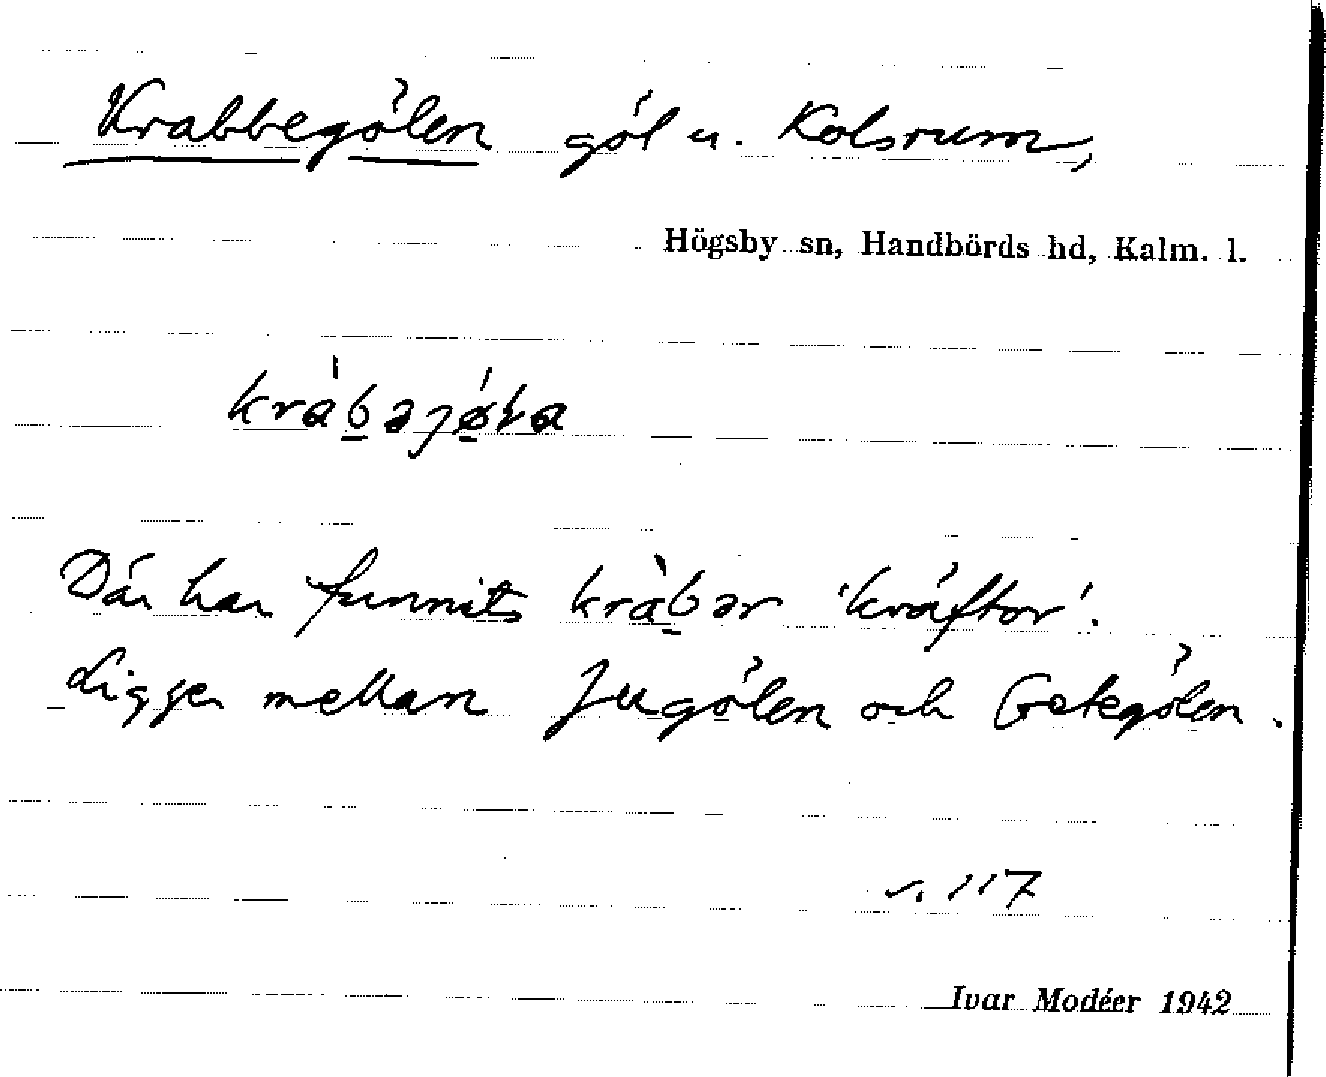 Krabbegölen göl u. Kolsrum,
Högsby sn, Handbörds hd, Kalm. l.
Där har funnits kràb̠ər 'kräftor'.
Ligger mellan Jugölen och Getegölen.
s. 117
Ivar Modéer 1942